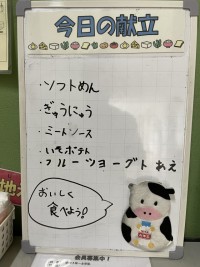 今日の献立
・ソフトめん
・ぎゅうにゅう
・ミートソース
・いもポテト
・フルーツヨーグルトあえ
おいしく
食べよう!
会員募集中!